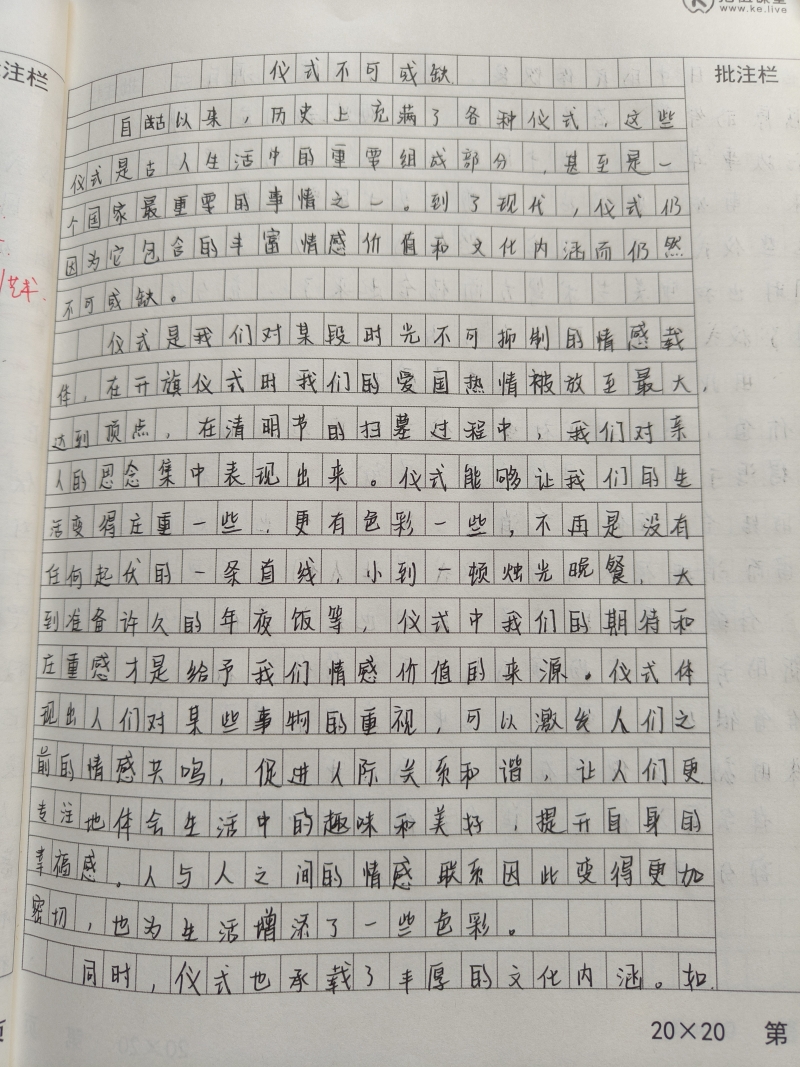 www.ke.live
注栏
批注栏
仪式不可或缺
自古以来，历史上充满了各种仪式，这些
仪式是古人生活中的重要组成部分，甚至是一
个国家最重要的事情之一。到了现代，仪式仍
因为它包含的丰富情感价值和文化内涵而仍然
不可或缺。
仪式是我们对某段时光不可抑制的情感载
体，在升旗仪式时我们的爱国热情被放至最大，
达到顶点，在清明节的扫墓过程中，我们对亲
人的思念集中表现出来。仪式能够让我们的生
活变得庄重一些，更有色彩一些，不再是没有
任何起伏的一条直线，小到一顿烛光晚餐，大
到准备许久的年夜饭等，仪式中我们的期待和
庄重感才是给予我们情感价值的来源。仪式体
现出人们对某些事物的重视，可以激发人们之
前的情感共鸣，促进人际关系和谐，让人们更
专注地体会生活中的趣味和美好，提升自身的
幸福感。人与人之间的情感联系因此变得更加
密切，也为生活增添了一些色彩。
同时，仪式也承载了丰厚的文化内涵。如
艺术.
20×20 第